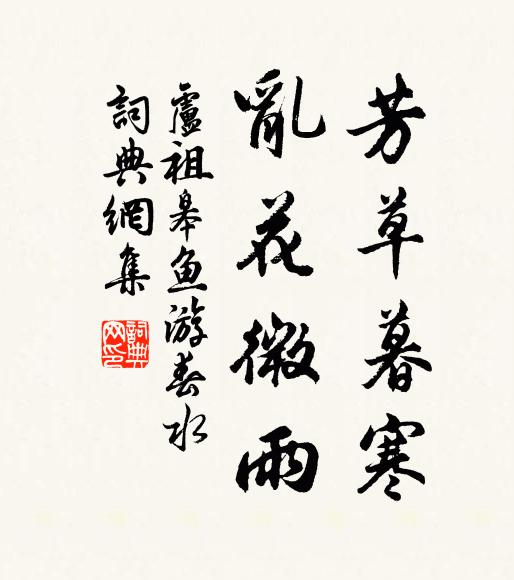 芳草暮寒
亂花微雨
盧祖皋魚游春水
詞典網集
詞典网印